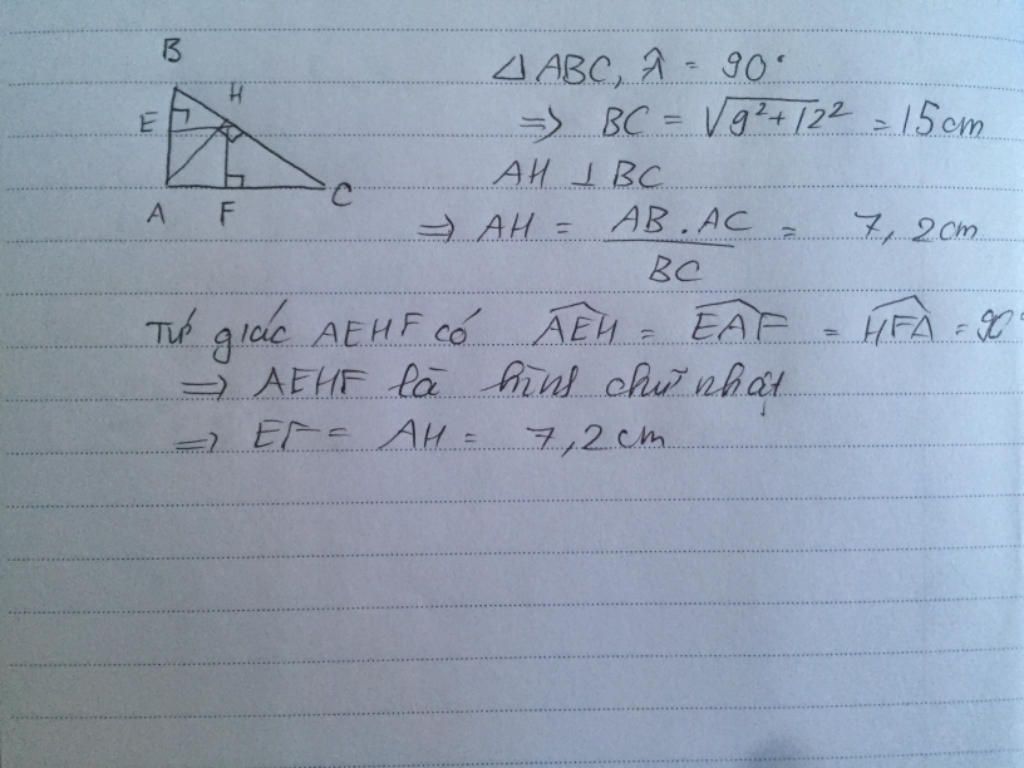 B
H
E
A
F
C
△ABC, Â = 90°
⇒ BC = √9²+12² = 15cm
AH ⊥ BC
⇒ AH = AB.AC / BC = 7,2cm
Tứ giác AEHF có ∠AEH = ∠EAF = ∠HFA = 90°
⇒ AEHF là hình chữ nhật
⇒ EF = AH = 7,2cm